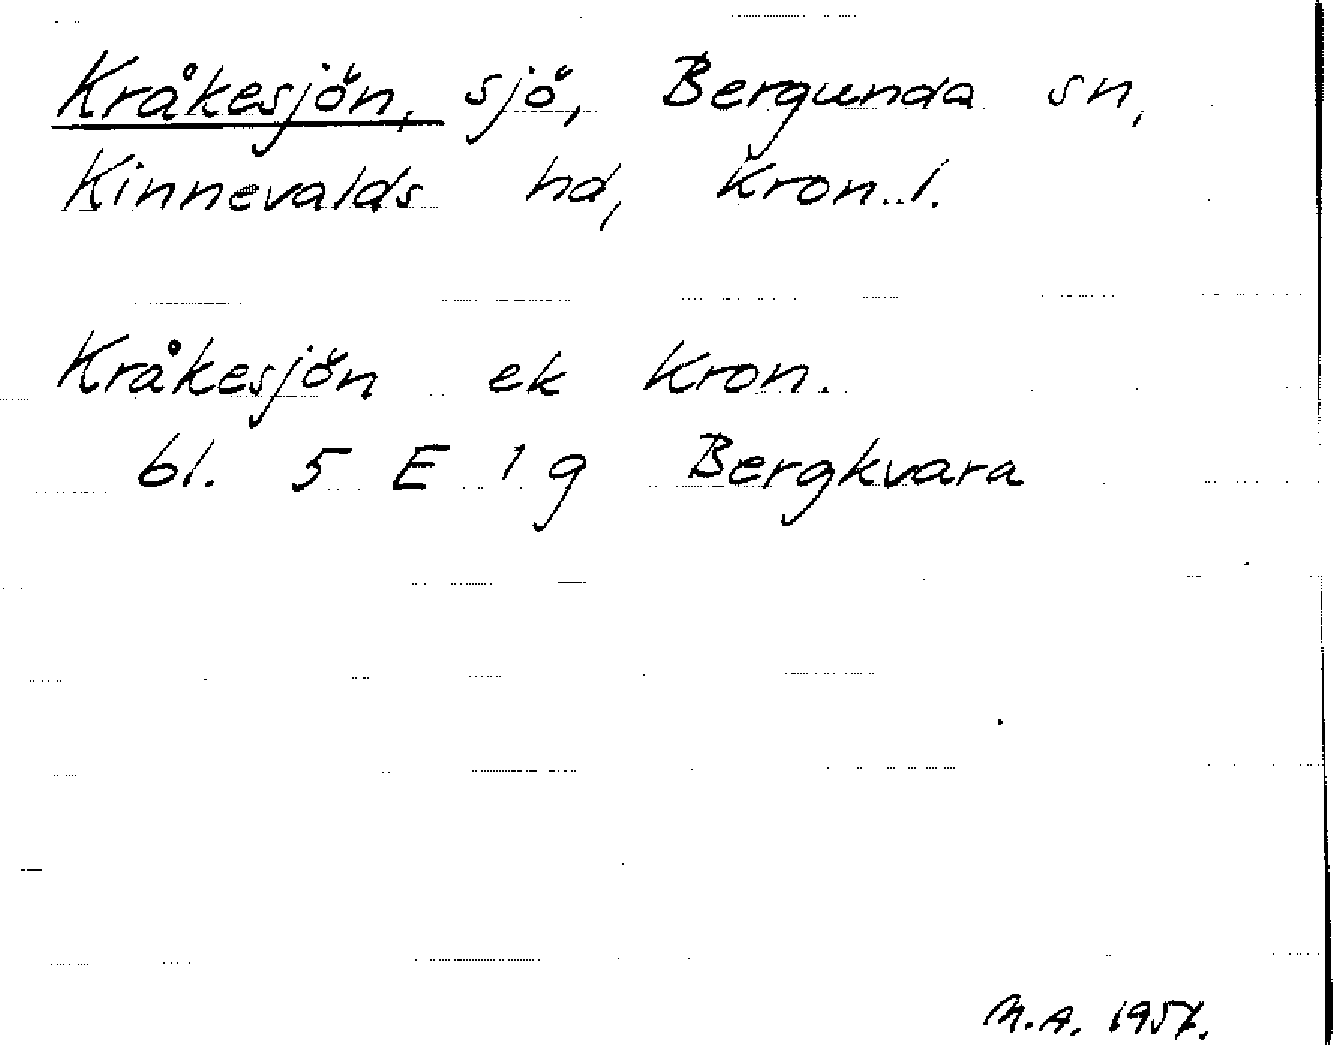 Kråkesjön, sjö, Bergunda sn,
Kinnevalds hd, Kron. l.
Kråkesjön ek Kron.
bl. 5 E 1 g Bergkvara
M.A. 1957.